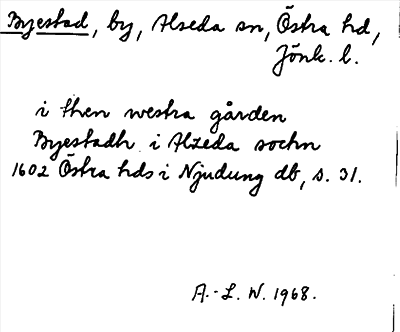 Byestad, by, Alseda sn, Östra hd,
Jönk. l.
i then westra gården
Byestadh i Alzeda sochn
1602 Östra hds i Njudung db, s. 31.
A.-L. W. 1968.